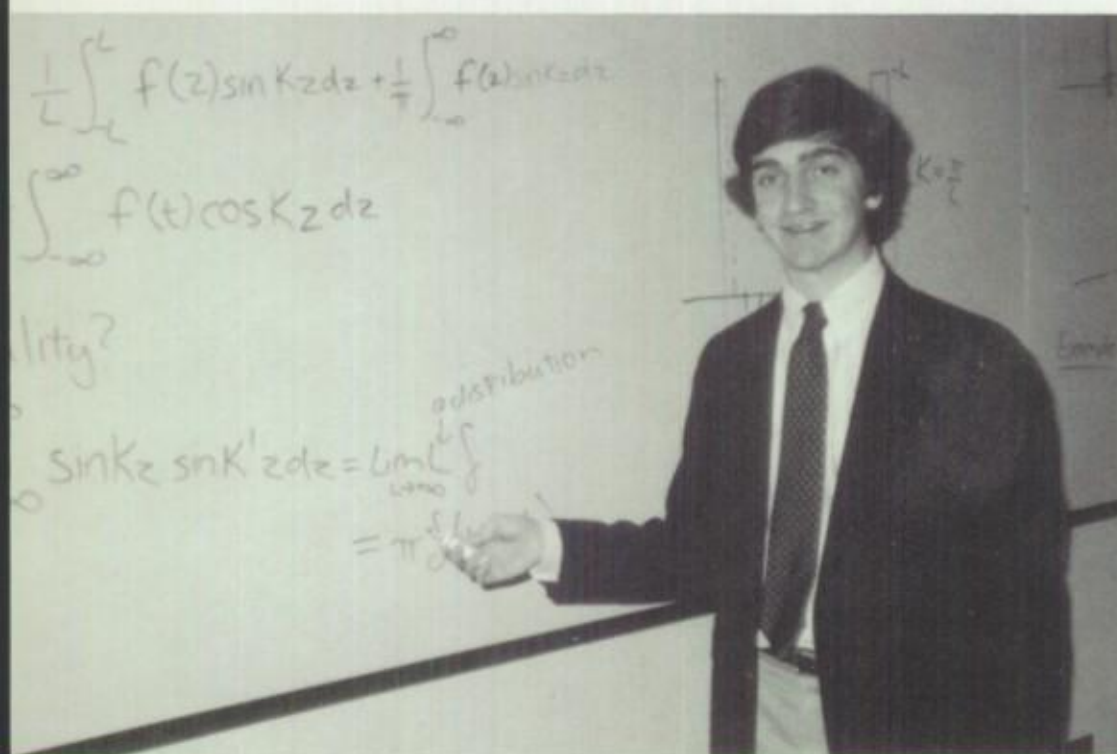 1/L ∫_{-L}^{L} f(z) sin Kz dz + 1/π ∫_{-∞}^{∞} f(z) sin Kz dz
∫_{-∞}^{∞} f(t) cos Kz dz
K = π/L
lity?
a distribution
∞ sin Kz snK'z dz = Lim_{L→∞} L ∫
= π
Example